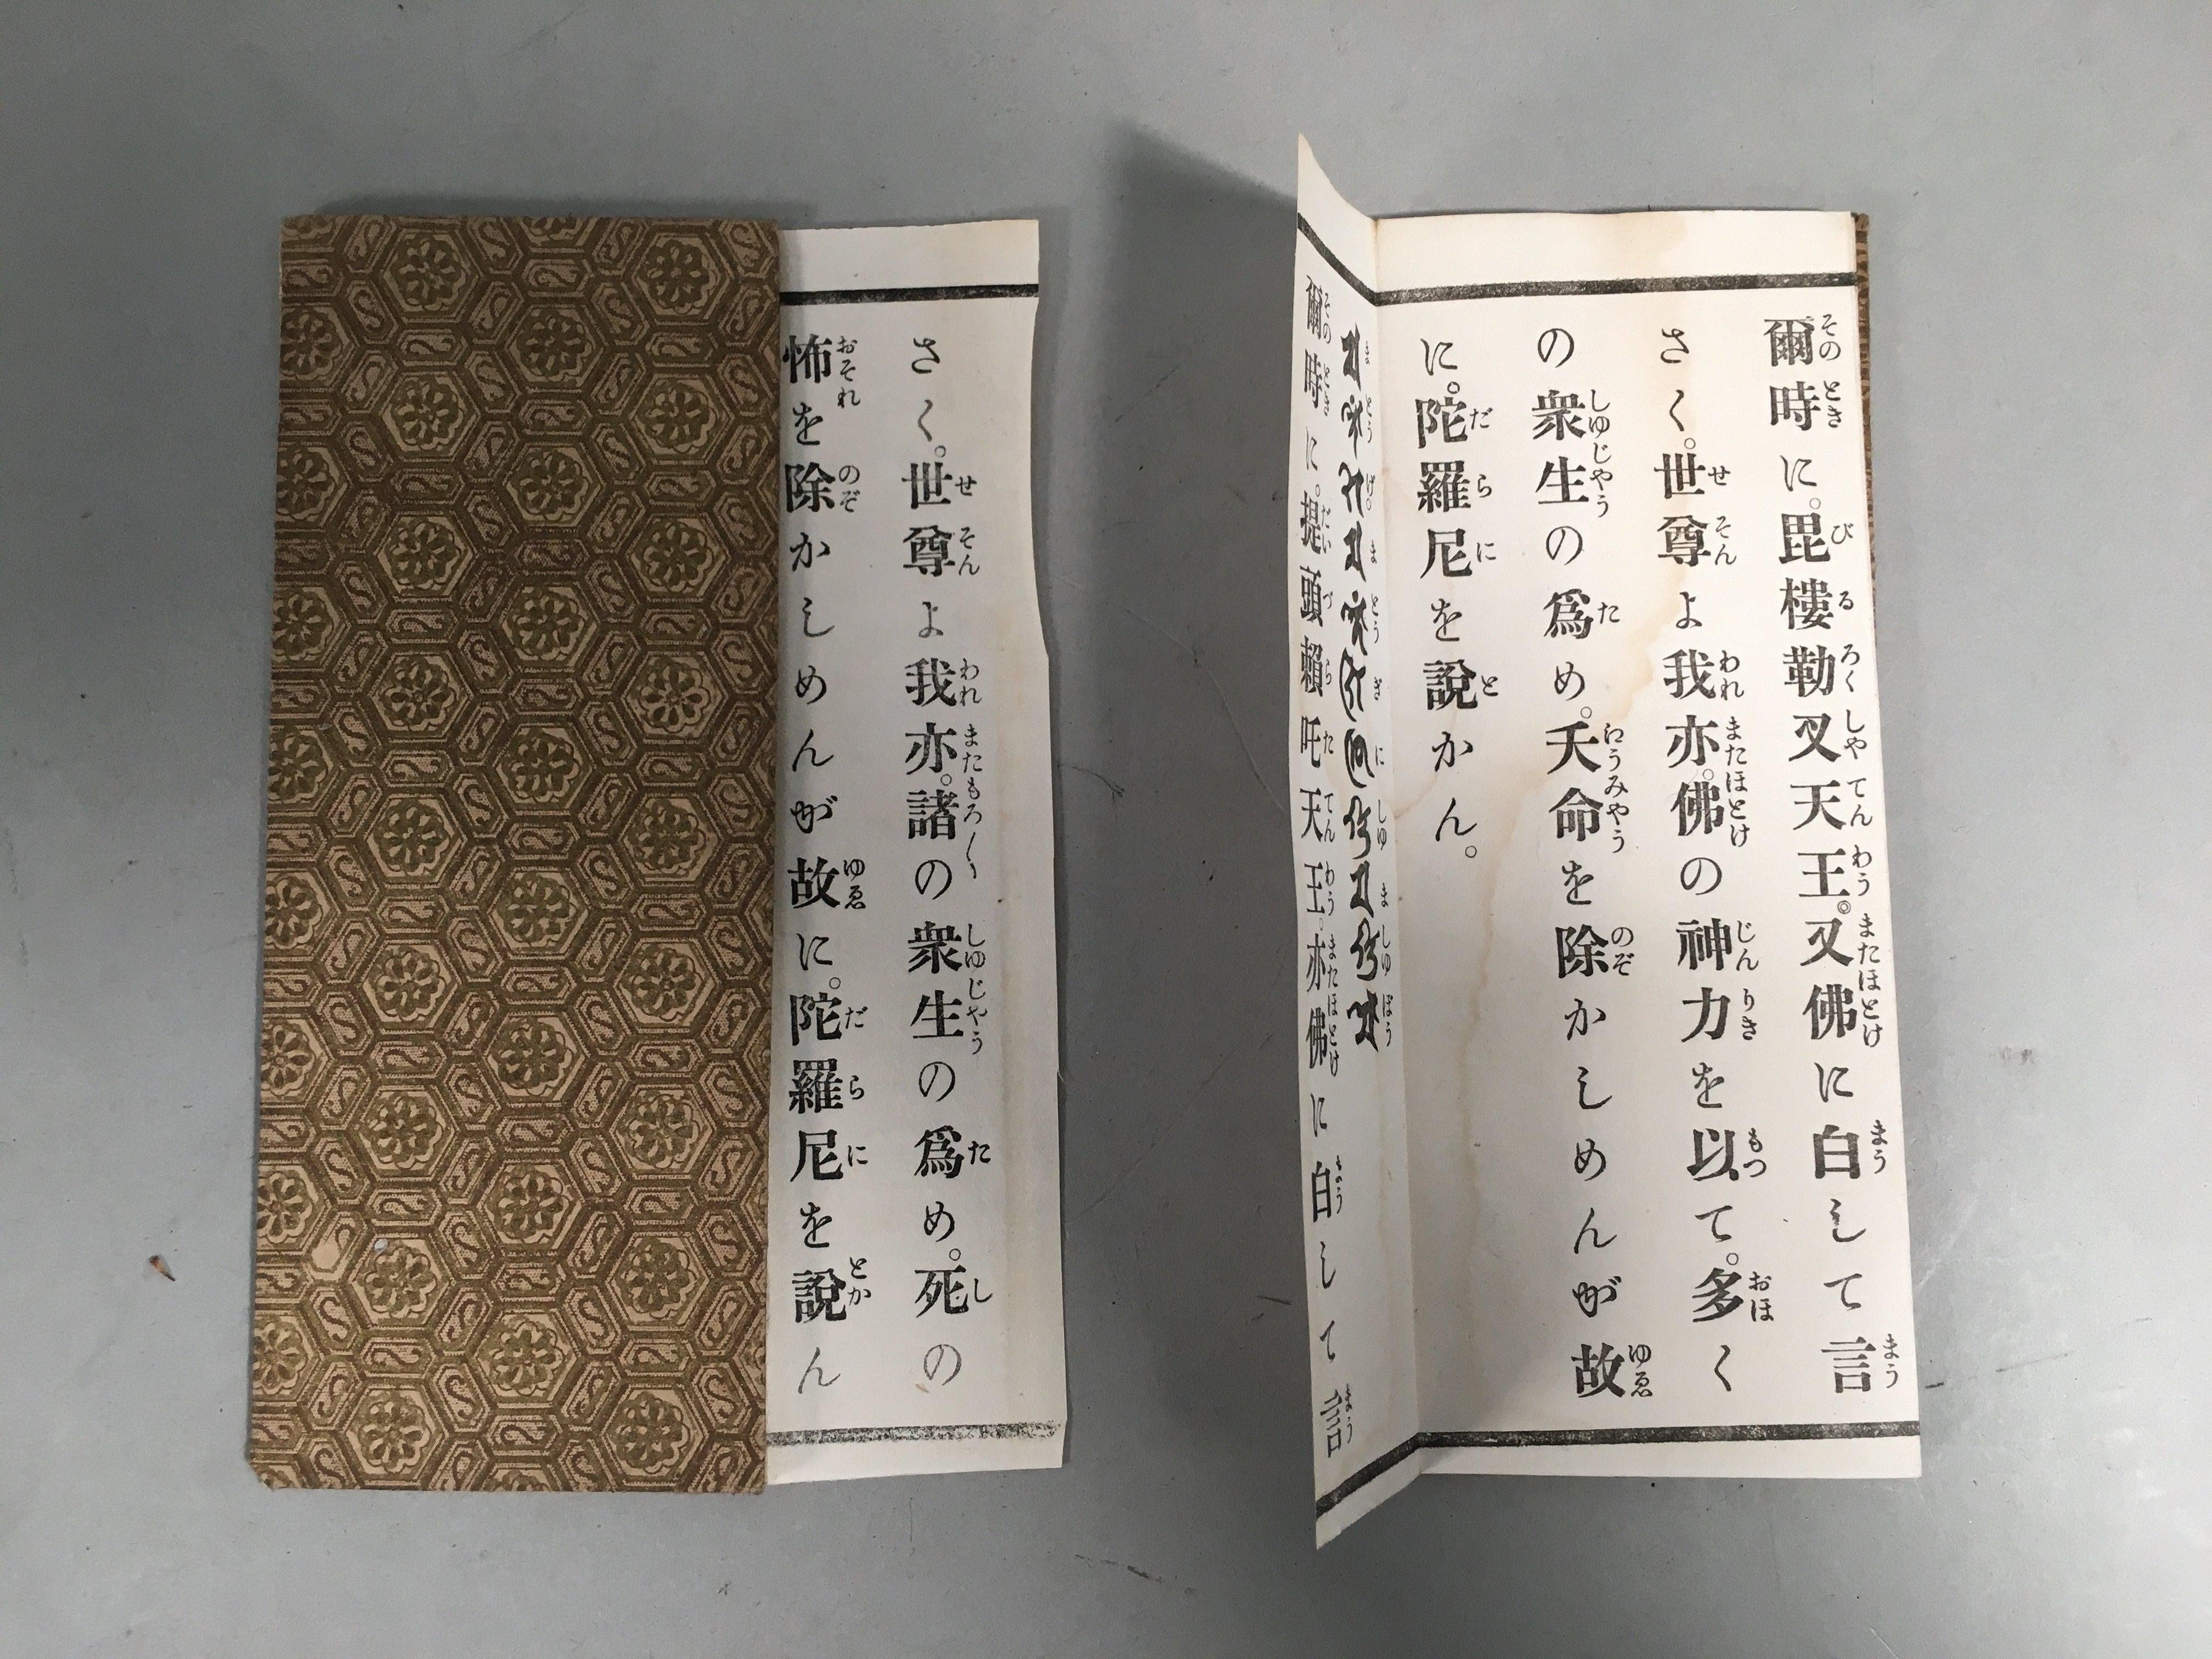 爾時に。毘樓勒叉天王。又佛に白して言
さく。世尊よ我亦。佛の神力を以て。多く
の衆生の爲め。夭命を除かしめんが故
に。陀羅尼を說かん。
爾時に。提頭賴吒天王。亦佛に白して言
さく。世尊よ我亦。諸の衆生の爲め。死の
怖を除かしめんが故に。陀羅尼を說かん